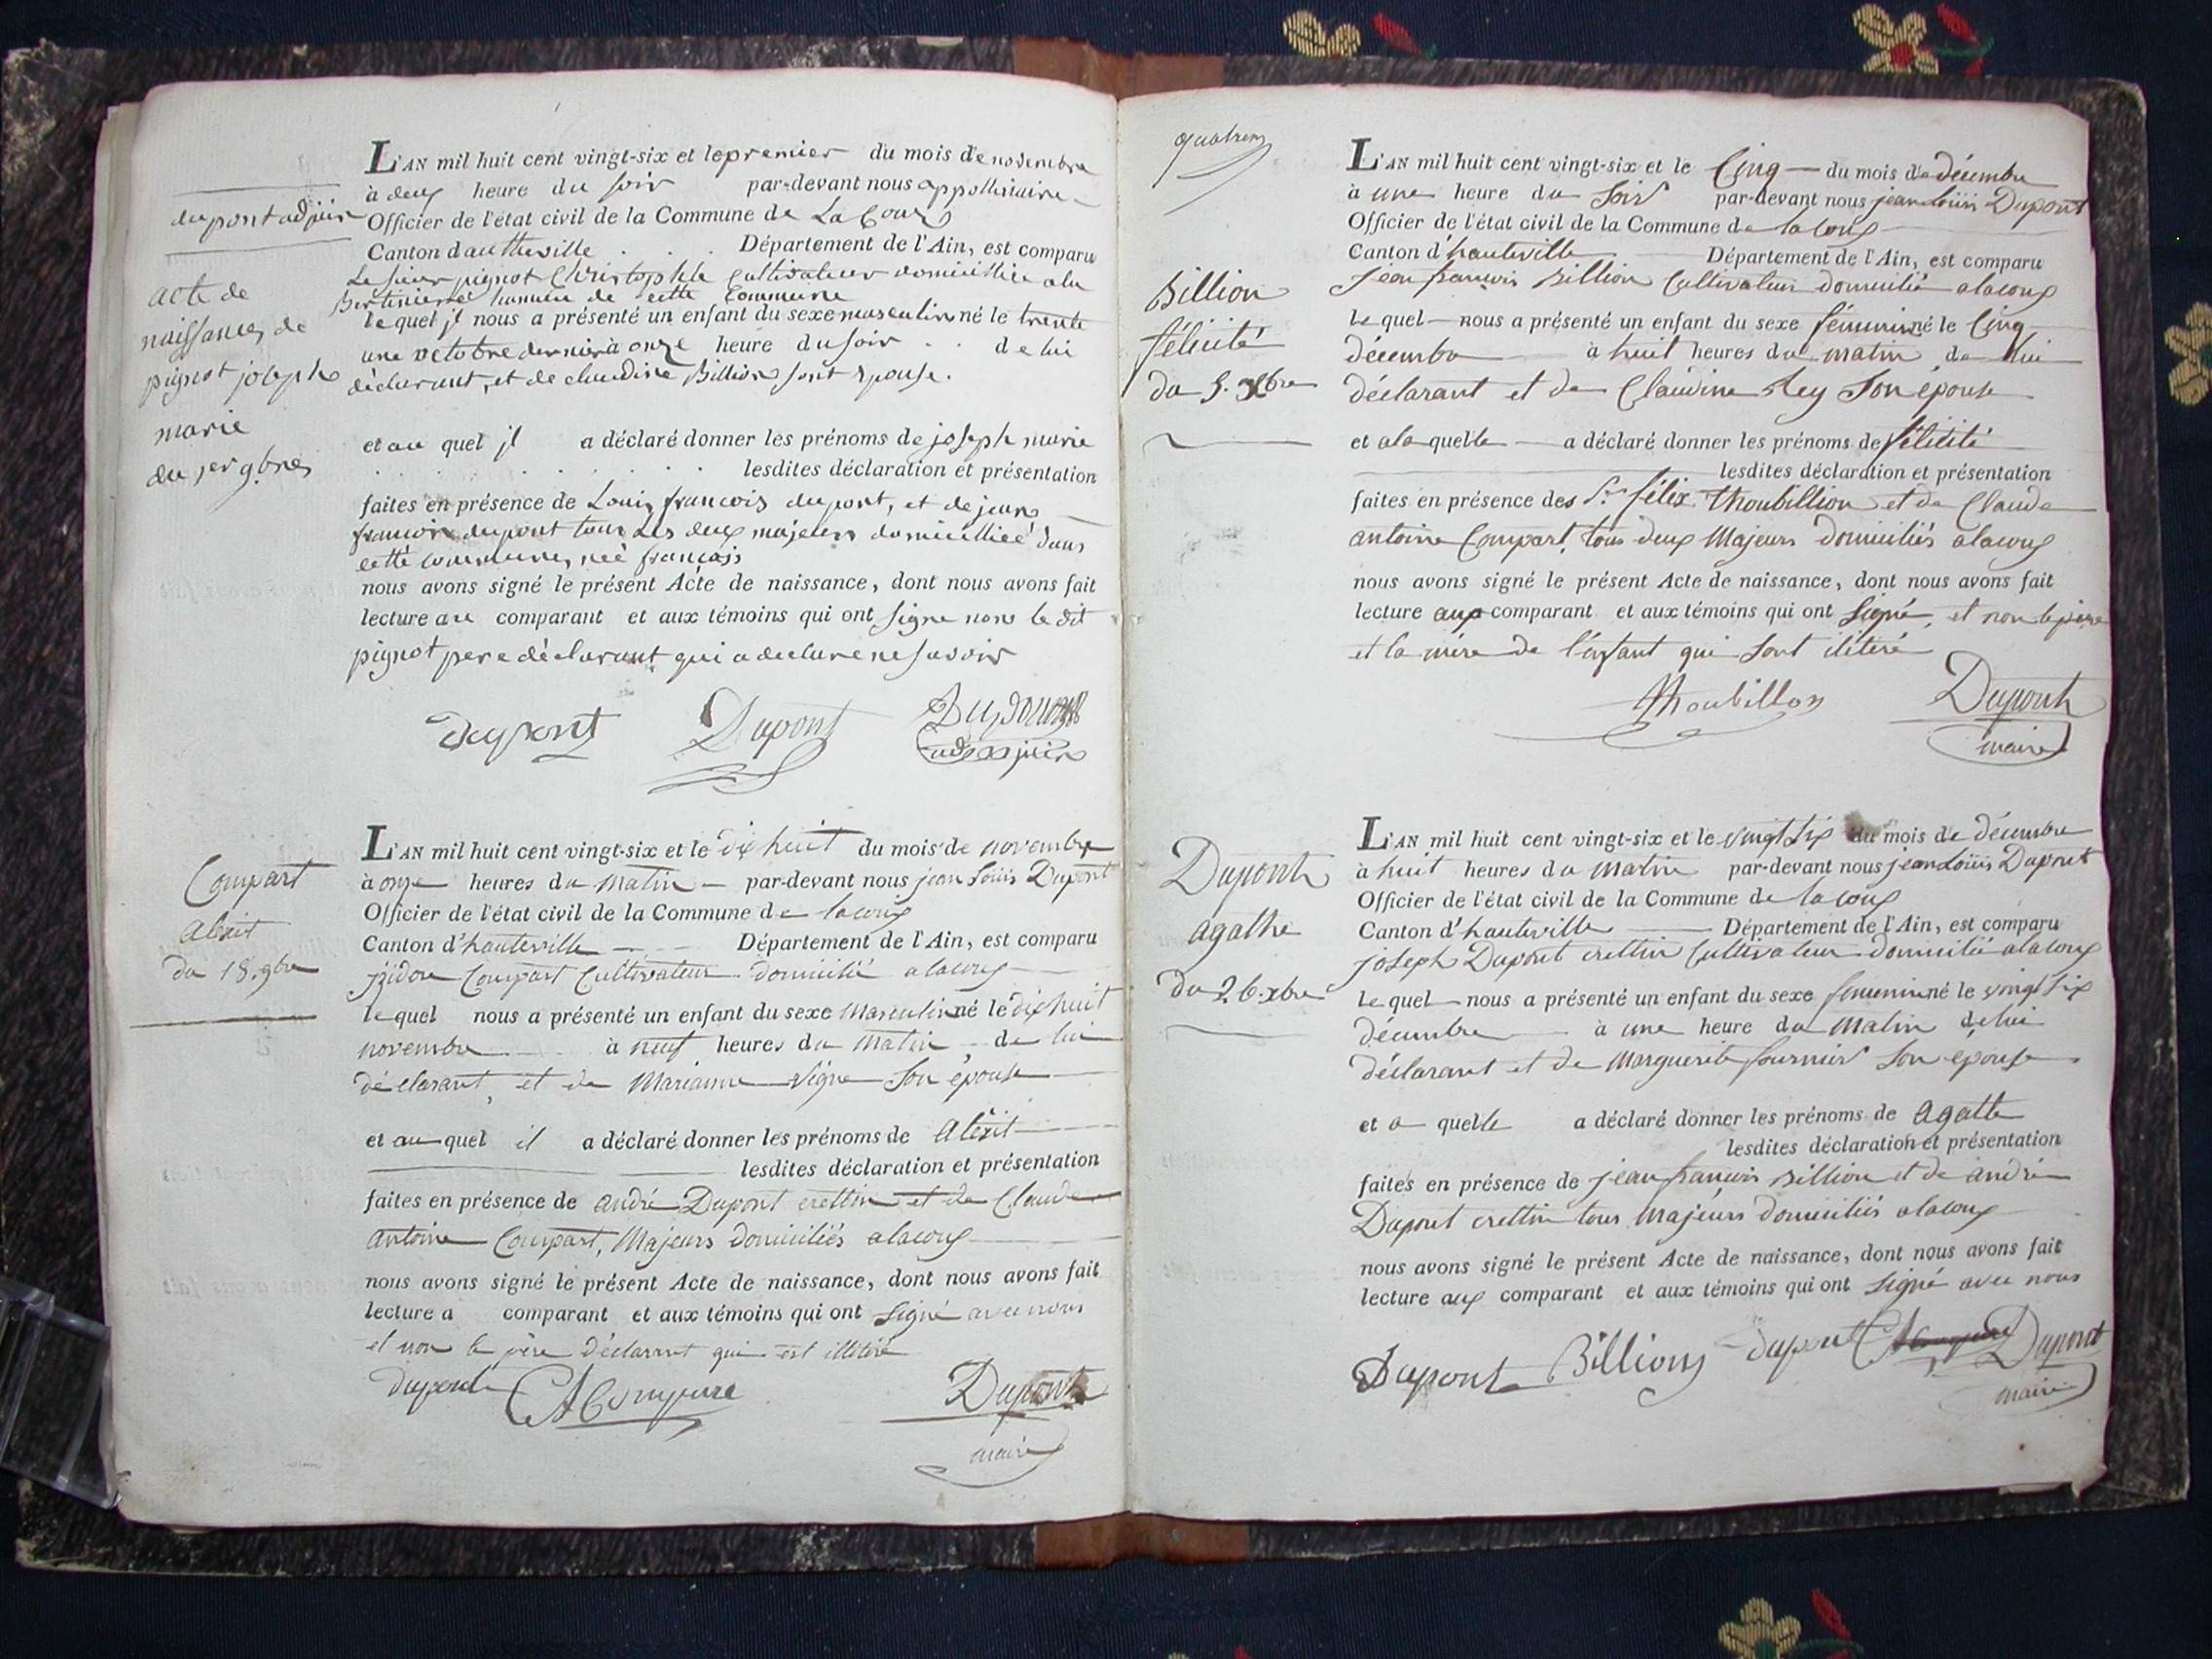 dupont adjoin
acte de
naissances de
pignot joseph
marie
du 1er 9bres
L'AN mil huit cent vingt-six et le premier du mois de novembre
à deux heure du soir par-devant nous appollinaire
Officier de l'état civil de la Commune de La Coux
Canton dautheville Département de l'Ain, est comparu
Le sieur pignot Christophle Cultivateur domicillié ala
Bertinière hameau de cette Commune
lequel jl nous a présenté un enfant du sexe masculin né le trente
une octobre dernier à onze heure du soir de lui
déclarant, et de claudine Billion sont épouse.
et au quel jl a déclaré donner les prénoms de joseph marie
lesdites déclaration et présentation
faites en présence de Louis francois dupont, et de jean
francois dupont tous les deux majeurs domicilliéé dans
cette commune, néé français
nous avons signé le présent Acte de naissance, dont nous avons fait
lecture au comparant et aux témoins qui ont signe non le dit
pignot pere déclarant qui a declare ne savoir
dupont Dupont
adjoin
Compart
Alexit
du 18. 9bre
L'AN mil huit cent vingt-six et le dix huit du mois de novembre
à onze heures du Matin par-devant nous jean Loüis Dupont
Officier de l'état civil de la Commune de lacoux
Canton d'hauteville Département de l'Ain, est comparu
jzidore Compart Cultivateur domicilié alacoux
lequel nous a présenté un enfant du sexe Masculin né le dix huit
novembre à neuf heures du Matin de lui
déclarant, et de Marianne Vigne Son épouse
et au quel il a déclaré donner les prénoms de Alexit
lesdites déclaration et présentation
faites en présence de andré Dupont crettin et de Claude
antoine Compart, Majeurs domiciliés alacoux
nous avons signé le présent Acte de naissance, dont nous avons fait
lecture a comparant et aux témoins qui ont Signé avec nous
et non le père déclarant qui est illitéré
dupont CA Compare Dupont
maire
Billion
félicité
du 5. xbre
L'AN mil huit cent vingt-six et le Cinq du mois de décembre
à une heure du Soir par-devant nous jean Loüis Dupont
Officier de l'état civil de la Commune de lacoux
Canton d'hauteville Département de l'Ain, est comparu
Jean françois Billion Cultivateur domicilié alacoux
lequel nous a présenté un enfant du sexe féminin né le Cinq
décembre à huit heures du matin de lui
déclarant et de Claudine Rey Son épouse
et ala quelle a déclaré donner les prénoms de félicité
lesdites déclaration et présentation
faites en présence des Sr félix Thoubillion et de Claude
antoine Compart, tous deux Majeurs domiciliés alacoux
nous avons signé le présent Acte de naissance, dont nous avons fait
lecture aux comparant et aux témoins qui ont Signé, et non le père
et la mère de l'enfant qui sont ilitéré
Thoubillon Dupont
maire
Dupont
agathe
du 26. xbre
L'AN mil huit cent vingt-six et le vingt Six du mois de décembre
à huit heures du matin par-devant nous jean Loüis Dupont
Officier de l'état civil de la Commune de lacoux
Canton d'hauteville Département de l'Ain, est comparu
joseph Dupont crettin Cultivateur domicilié alacoux
lequel nous a présenté un enfant du sexe féminin né le vingt Six
décembre à une heure du Matin de lui
déclarant et de Marguerite fournier Son épouse
et a quelle a déclaré donner les prénoms de Agatte
lesdites déclaration et présentation
faites en présence de jean françois Billion et de andré
Dupont crettin tous Majeurs domiciliés alacoux
nous avons signé le présent Acte de naissance, dont nous avons fait
lecture aux comparant et aux témoins qui ont Signé avec nous
Dupont Billion dupont Dupont
maire